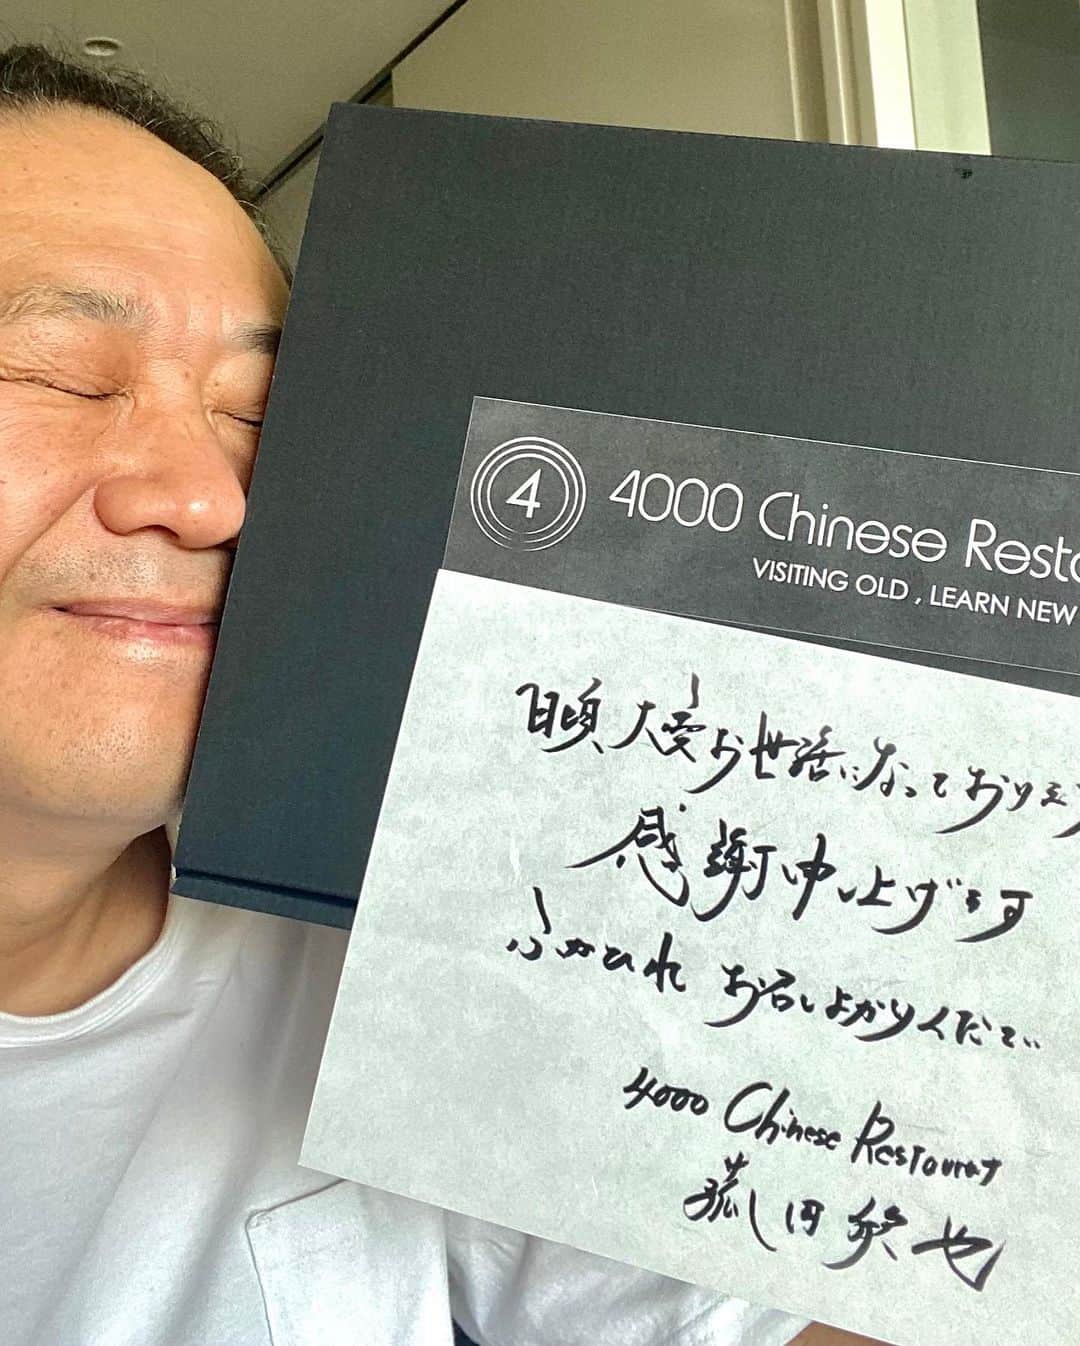 4
4000 Chinese Resta
VISITING OLD , LEARN NEW
日頃、大変お世話になっております
感謝申し上げます
ふかひれ お召しよがりください
4000 Chinese Restaurant
菰田欣也